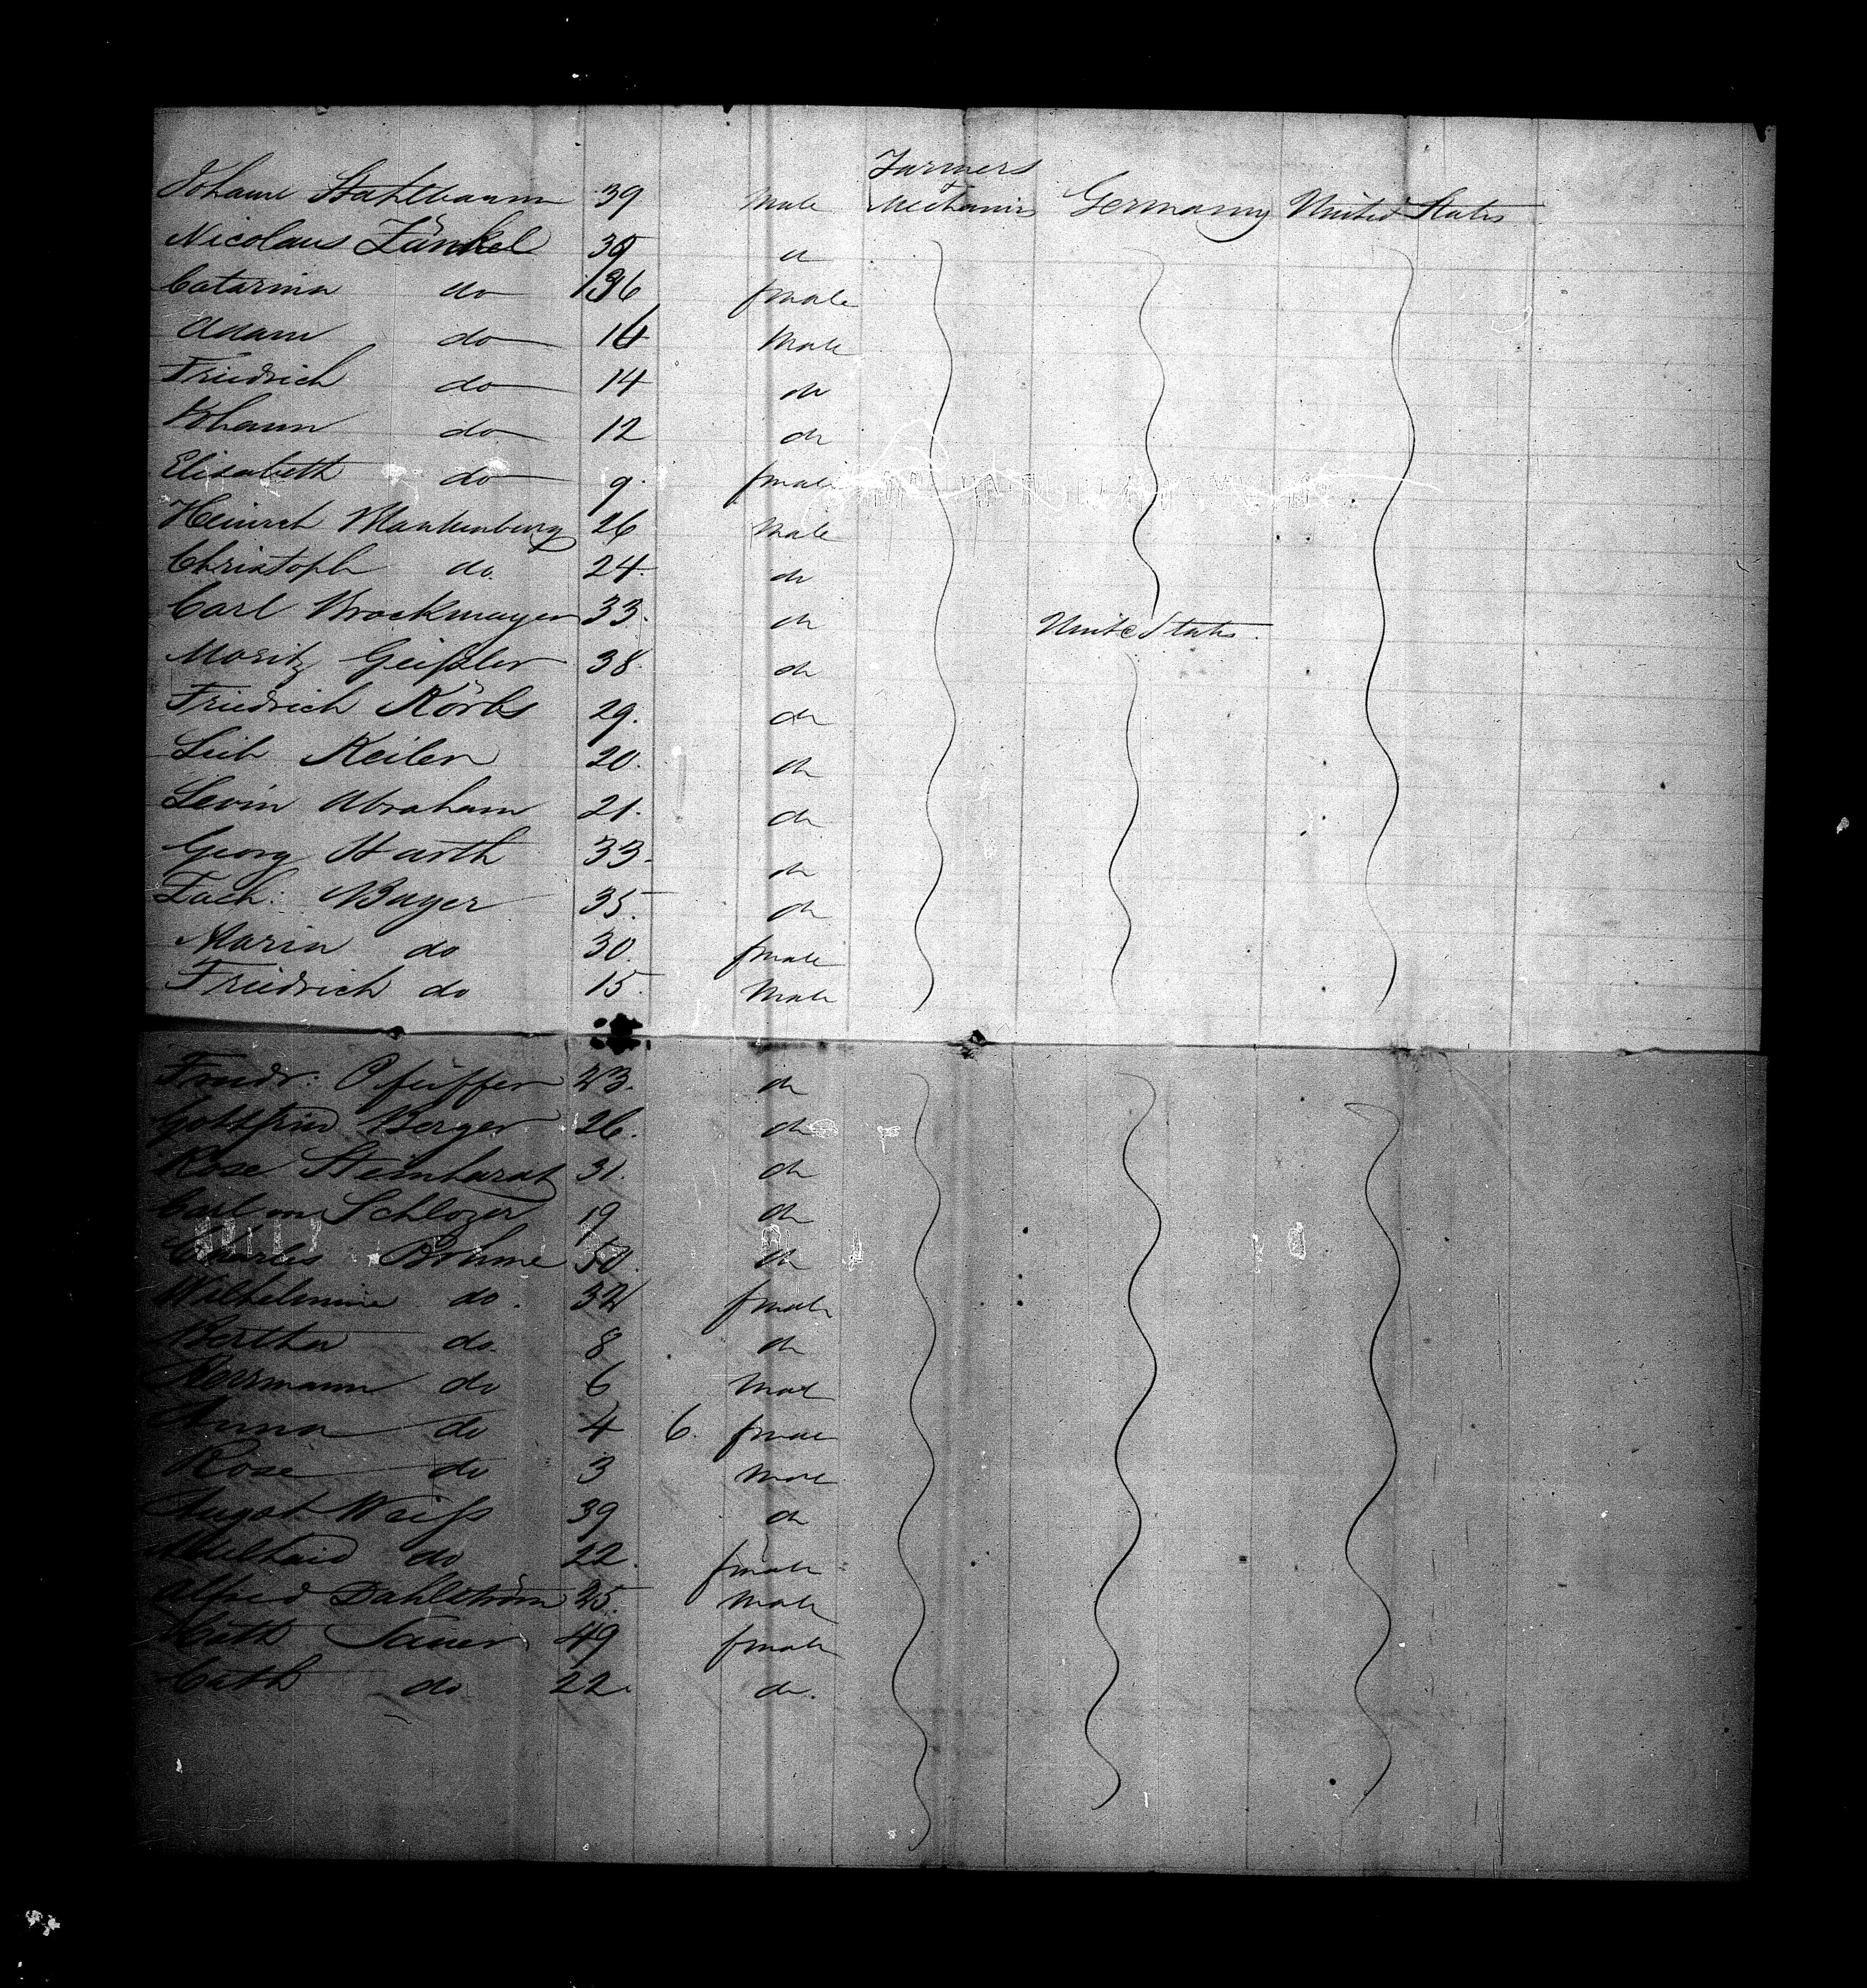 Farmers
Johann Stahlbaum 39 Male Mechanics Germany United States
Nicolaus Zänkel 39 do
Catarina do 36 female
Adam do 16 Male
Friedrich do 14 do
Johann do 12 do
Elisabeth do 9. female
Heinrch Blankenburg 26 Male
Christoph do. 24. do
Carl Brockmayer 33. do United States.
Moritz Geißler 38. do
Friedrich Körbs 29. do
Leib Keiler 20. do
Levin Abraham 21. do
Georg Harth 33. do
Zach. Bayer 35. do
Maria do 30. female
Friedrich do 15. Male
Friedr. Pfeiffer 23. do
Gottfried Berger 26. do
Rose Steinhardt 31. do
Carl von Schlozer 19 do
Charles Böhme 50. do
Wilhelmine do. 32 female
Bertha do. 8 do
Herrmann do 6 Male
Anna do 4 6. female
Rose do 3 Male
August Weiß 39 do
Adelhaid do 22. female
Alfred Dahlström 25. Male
Cath Sauer 49 female
Cath do 22. do.